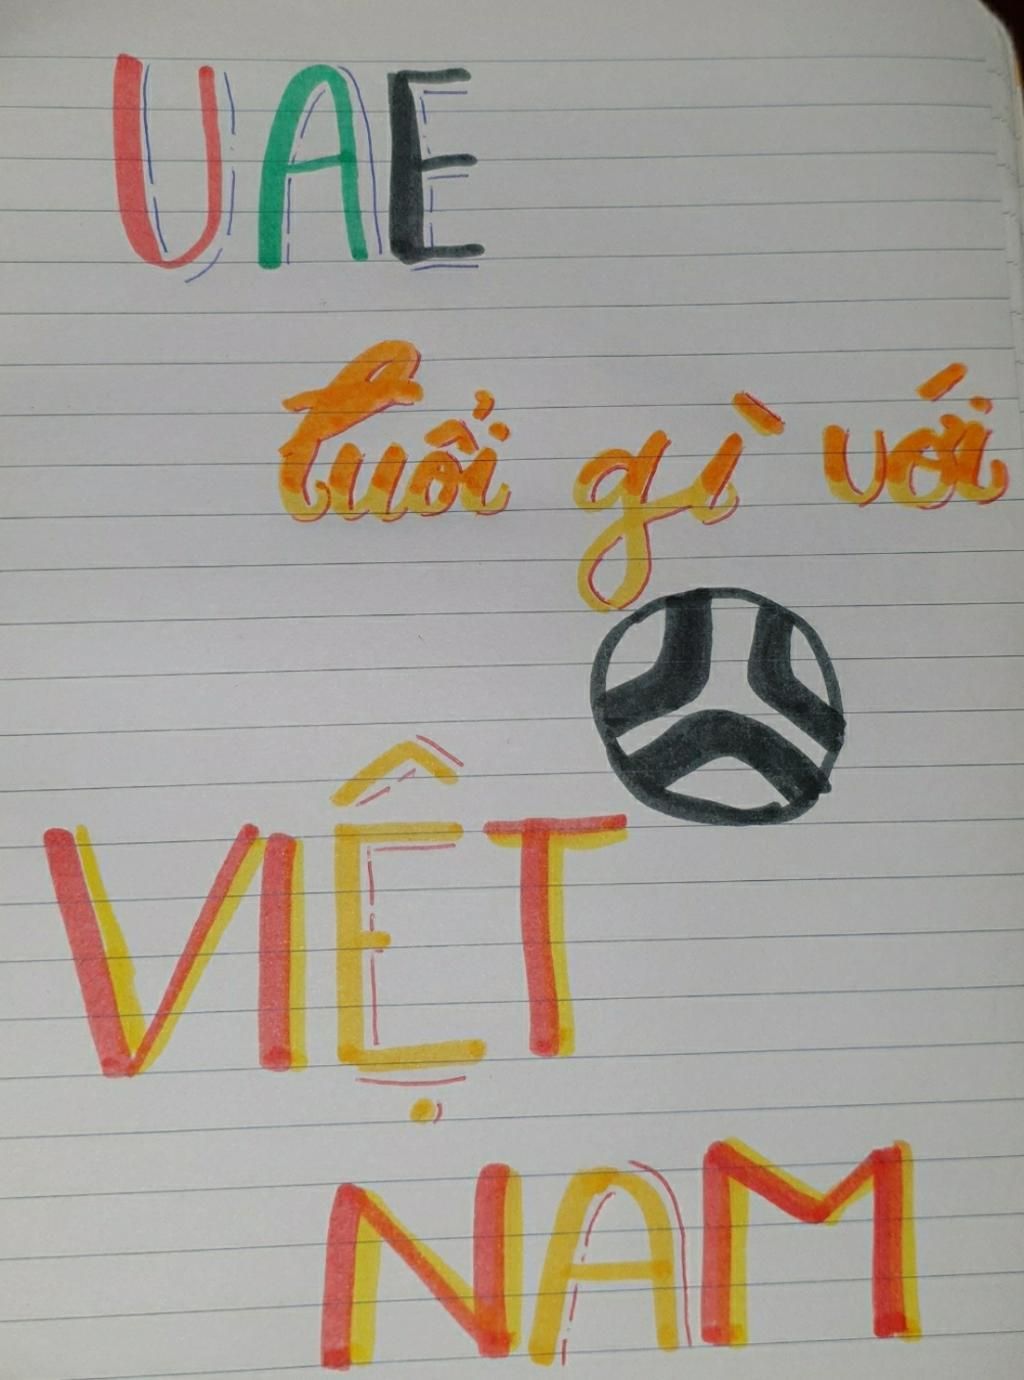 UAE
tuổi gì với
VIỆT
NAM